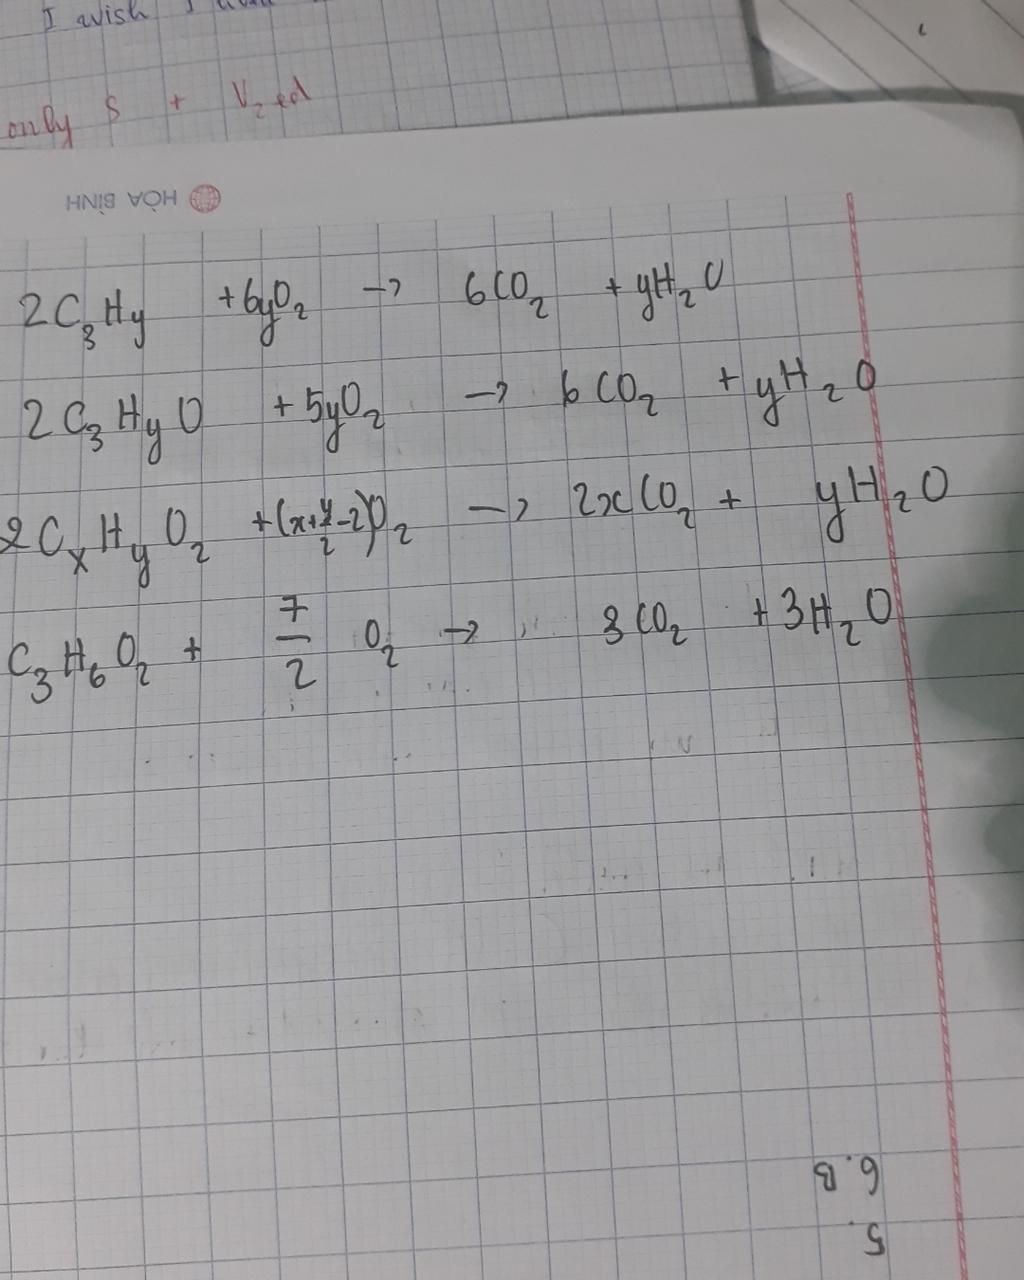 I wish I
only S + V₂ ed
HÒA BÌNH
2C₃Hy + 6yO₂ → 6CO₂ + yH₂O
2C₃HyO + 5yO₂ → 6CO₂ + yH₂O
2CₓHyO₂ + (x+y/2-2)O₂ → 2xCO₂ + yH₂O
C₃H₆O₂ + 7/2 O₂ → 3CO₂ + 3H₂O
6. B
5.